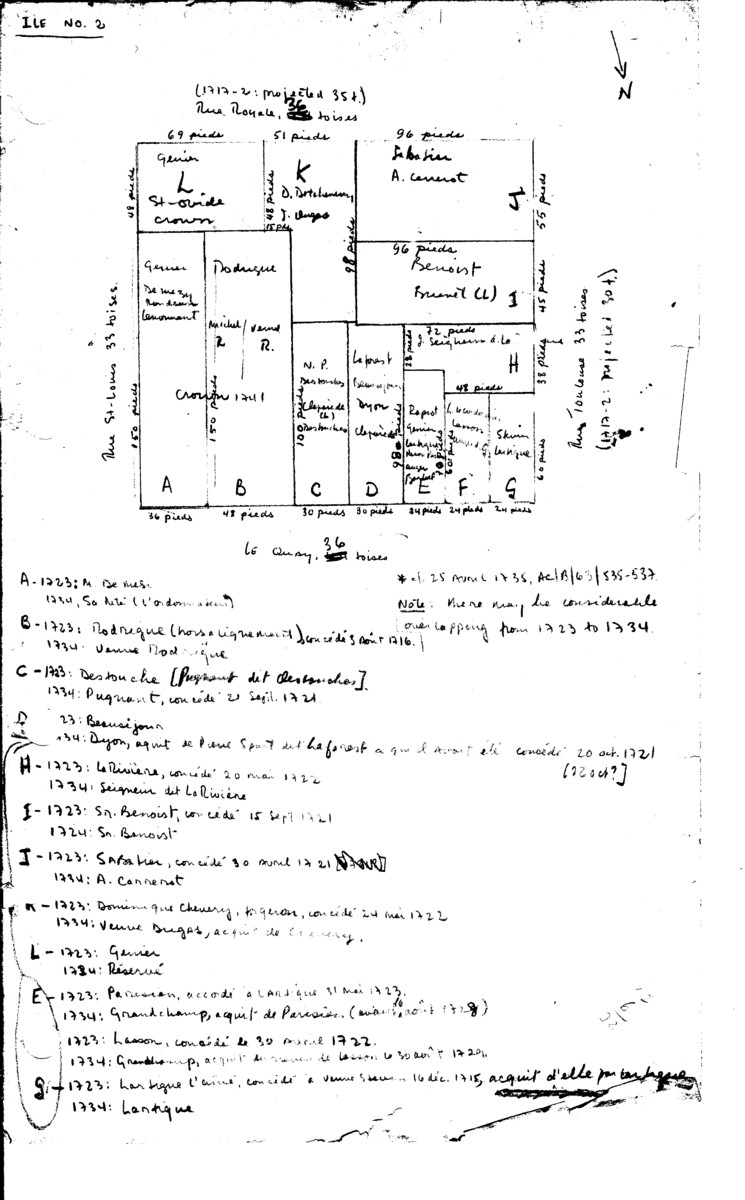 ILE NO. 2
N
(1717-2: projected 35t.)
Rue Royale, 36 toises
69 pieds
51 pieds
96 pieds
Genier
L
St-ovide
crown
48 pieds
K
D. Detcheverry,
J. Dugas
48 pieds
15 pds
98 pieds
Sabatier
A. Carrerot
J
55 pieds
96 pieds
Benoist
Brunet (L)
I
45 pieds
72 pieds
J. Seigneur d. La
H
28 pieds
38 pieds
48 pieds
Rue St-Louis 33 toises.
Rue Toulouse 33 toises
(1717-2: projected 30t.)
Genier
De mezy
Lenormant
150 pieds
A
Rodrigue
Michel / Veuve
R R.
Crown 1741
150 pieds
B
N. P.
Destouches
(Claparède
(L)
Destouches
100 pieds
C
Laforest
Beausejour
Dyon
Claparède
98 pieds
D
Rapiot
Genier
Lartigue
E
Lasson
60 pieds
F
Lartigue
G
60 pieds
36 pieds
48 pieds
30 pieds
30 pieds
24 pieds
24 pieds
24 pieds
Le Quay, 36 toises
A - 1723: M. De Mesi
1734, Sa Mté (l'ordonnateur)
* cf. 25 Avril 1735, AC/B/63/535-537.
Note: there may be considerable
overlapping from 1723 to 1734.
B - 1723: Rodrigue (hors alignement), concédé 3 Août 1716.
1734. Veuve Rodrigue
C - 1723: Destouche [Pugnant dit Destouches].
1734: Pugnant, concédé 21 Sept. 1721
D
23: Beauséjour
34: Dyon, aquit de Pierre dit Laforest a qui l'avait été concédé 20 oct. 1721
[22 oct?]
H - 1723: LaRivière, concédé 20 mai 1722
1734: Seigneur dit LaRivière
I - 1723: Sr. Benoist, concédé 15 Sept 1721
1724: Sr. Benoist
J - 1723: Sabatier, concédé 30 avril 1721
1734: A. Carrerot
K - 1723: Dominique Chevery, forgeron, concédé 24 mai 1722
1734: Veuve Dugas, acquit de Chevery.
L - 1723: Genier
1734: Réservé
E - 1723: Paresian, accordé à Lartigue 31 mai 1723.
1734: Grandchamp, acquit de Paresien. (août 1728)
1723: Lasson, concédé le 30 avril 1722.
1734: Grandchamp, acquit de Lasson le 30 août 1729.
G - 1723: Lartigue l'ainé, concédé à veuve 16 déc. 1715, acquit d'elle par Lartigue
1734: Lartigue